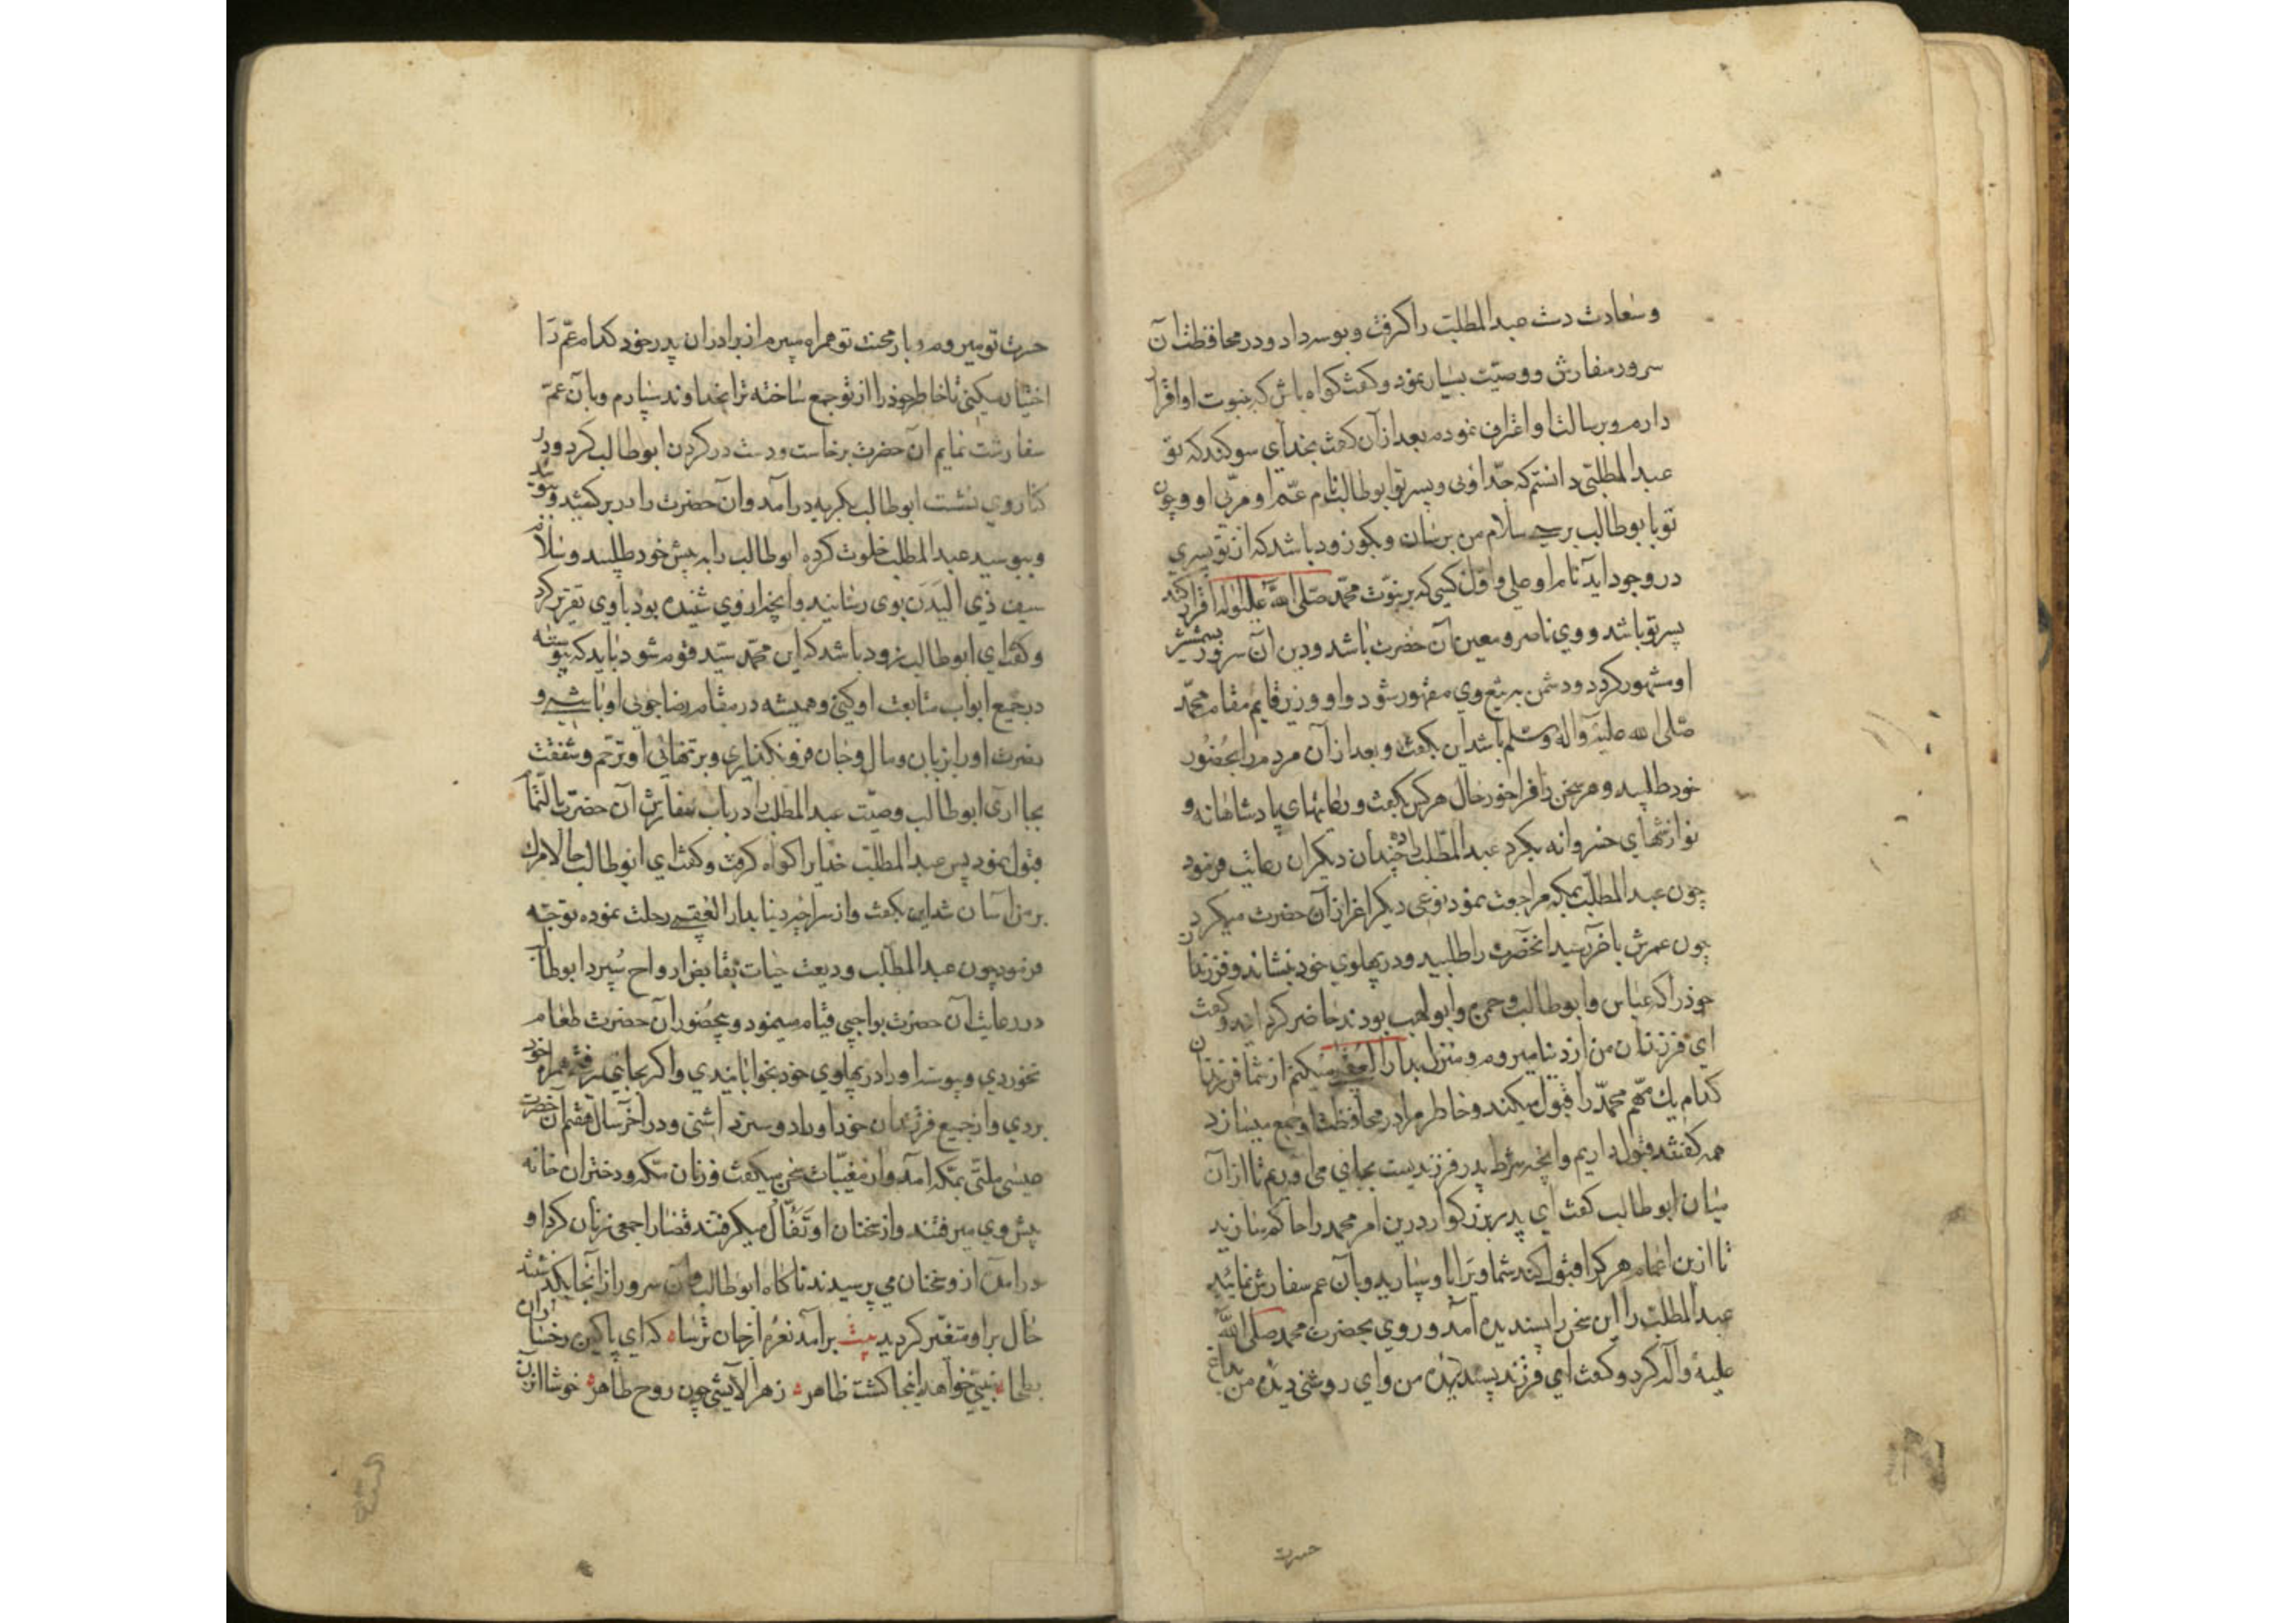 وسعادت دست عبدالمطلب را گرفت و بوسه داد و در محافظت آن
سرور سفارش و وصیت بسیار نمود و گفت گواه باش که بنبوت او اقرار
دارم و برسالت او اعتراف نمودم بعد از آن گفت بخدای سوگند که تو
عبدالمطلبی دانستم که جد اوئی و پسر تو ابوطالب نام عم او و مربی او و چون
تو با بوطالب برسی سلام من برسان و بگو زود باشد که از تو پسری
در وجود آید نام او علی و اول کسی که بر نبوت محمد صلی الله علیه وآله اقرار کند
پسر تو باشد و وی ناصر و معین آن حضرت باشد و دین آن سرور بشمشیر
او مشهور گردد و دشمن به تیغ وی مقهور شود و او وزیر و قایم مقام محمد
صلی الله علیه وآله وسلم باشد این بگفت و بعد از آن مردم را بحضور
خود طلبید و هر سخن را فراخور حال هر کس بگفت و رعایتهای پادشاهانه و
نوازشهای خسروانه بکرد عبدالمطلب را ده چندان دیگران رعایت فرمود
چون عبدالمطلب بمکه مراجعت نمود نوعی دیگر اعزاز آن حضرت میکرد
چون عمرش بآخر رسید آنحضرت را طلبید و در پهلوی خود بنشاند و فرزندان
خود را که عباس و ابوطالب و حمزه و ابولهب بودند حاضر گردانید و گفت
ای فرزندان من از دنیا میروم و منزل بدار العقبی میکنم از شما فرزندان
کدام یک مهم محمد را قبول میکند و خاطر مرا در محافظت او جمع میسازد
همه گفتند قبول داریم و آنچه شرط پدر فرزندیست بجای می آوریم تا از آن
میان ابوطالب گفت ای پدر بزرگوار درین امر محمد را حاکم سازید
تا ازین اعمام هر کرا قبول کند شما ویرا باو سپارید و بآن عم سفارش نمائید
عبدالمطلب را این سخن پسندیده آمد و روی بحضرت محمد صلی الله
علیه وآله کرد و گفت ای فرزند پسندیده من و ای روشنی دیده من بداغ
حسرت
حسرت تو میروم و بار محنت تو همراه میبرم از برادران پدر خود کدام عم را
اختیار میکنی تا خاطر خود را از تو جمع ساخته ترا بخداوند سپارم و بآن عم
سفارشت نمایم آن حضرت برخاست و دست در گردن ابوطالب کرد و در
کنار وی نشست ابوطالب بگریه درآمد و آن حضرت را در بر کشید و
و ببوسید عبدالمطلب خلوت کرده ابوطالب را به پیش خود طلبید و سلام
سیف ذی الیزن بوی رسانید و آنچه از وی شنیده بود با وی تقریر کرد
و گفت ای ابوطالب زود باشد که این محمد سید قوم شود باید که پیوسته
در جمیع ابواب متابعت او کنی و همیشه در مقام رضاجوئی او باشی و
نصرت او را بزبان و مال و جان فرو نگذاری و بر تنهائی او ترحم و شفقت
بجا آری ابوطالب وصیت عبدالمطلب را در باب سفارش آن حضرت بالتمام
قبول نمود پس عبدالمطلب خدایرا گواه گرفت و گفت ای ابوطالب حالا مرگ
بر من آسان شد این بگفت و از سراچه دنیا بدار العقبی رحلت نموده توجه
فرمود چون عبدالمطلب ودیعت حیات بقابض ارواح سپرد ابوطالب
در رعایت آن حضرت بواجبی قیام مینمود و بحضور آن حضرت طعام
نخوردی و پیوسته او را در پهلوی خود بخوابانیدی و اگر بجایی رفتی همراه خود
بردی و از جمیع فرزندان خود او را دوستر داشتی و در آخر سال هفتم آن حضرت
بمکه آمد و از مغیبات سخن میگفت و زنان مکه و دختران خانه
پیش وی میرفتند و از سخنان او تفأل میگرفتند قضا را جمعی زنان گرد او
درآمده از و سخنان می پرسیدند ناگاه ابوطالب و آن سرور از آنجا بگذشتند
حال بر او متغیر گردید بیت برآمد نعره از جان ترسا که ای پاکیزه رخسار
بطحا نبیی خواهد اینجا گشت ظاهر ز هر آلایشی چون روح طاهر خوشا